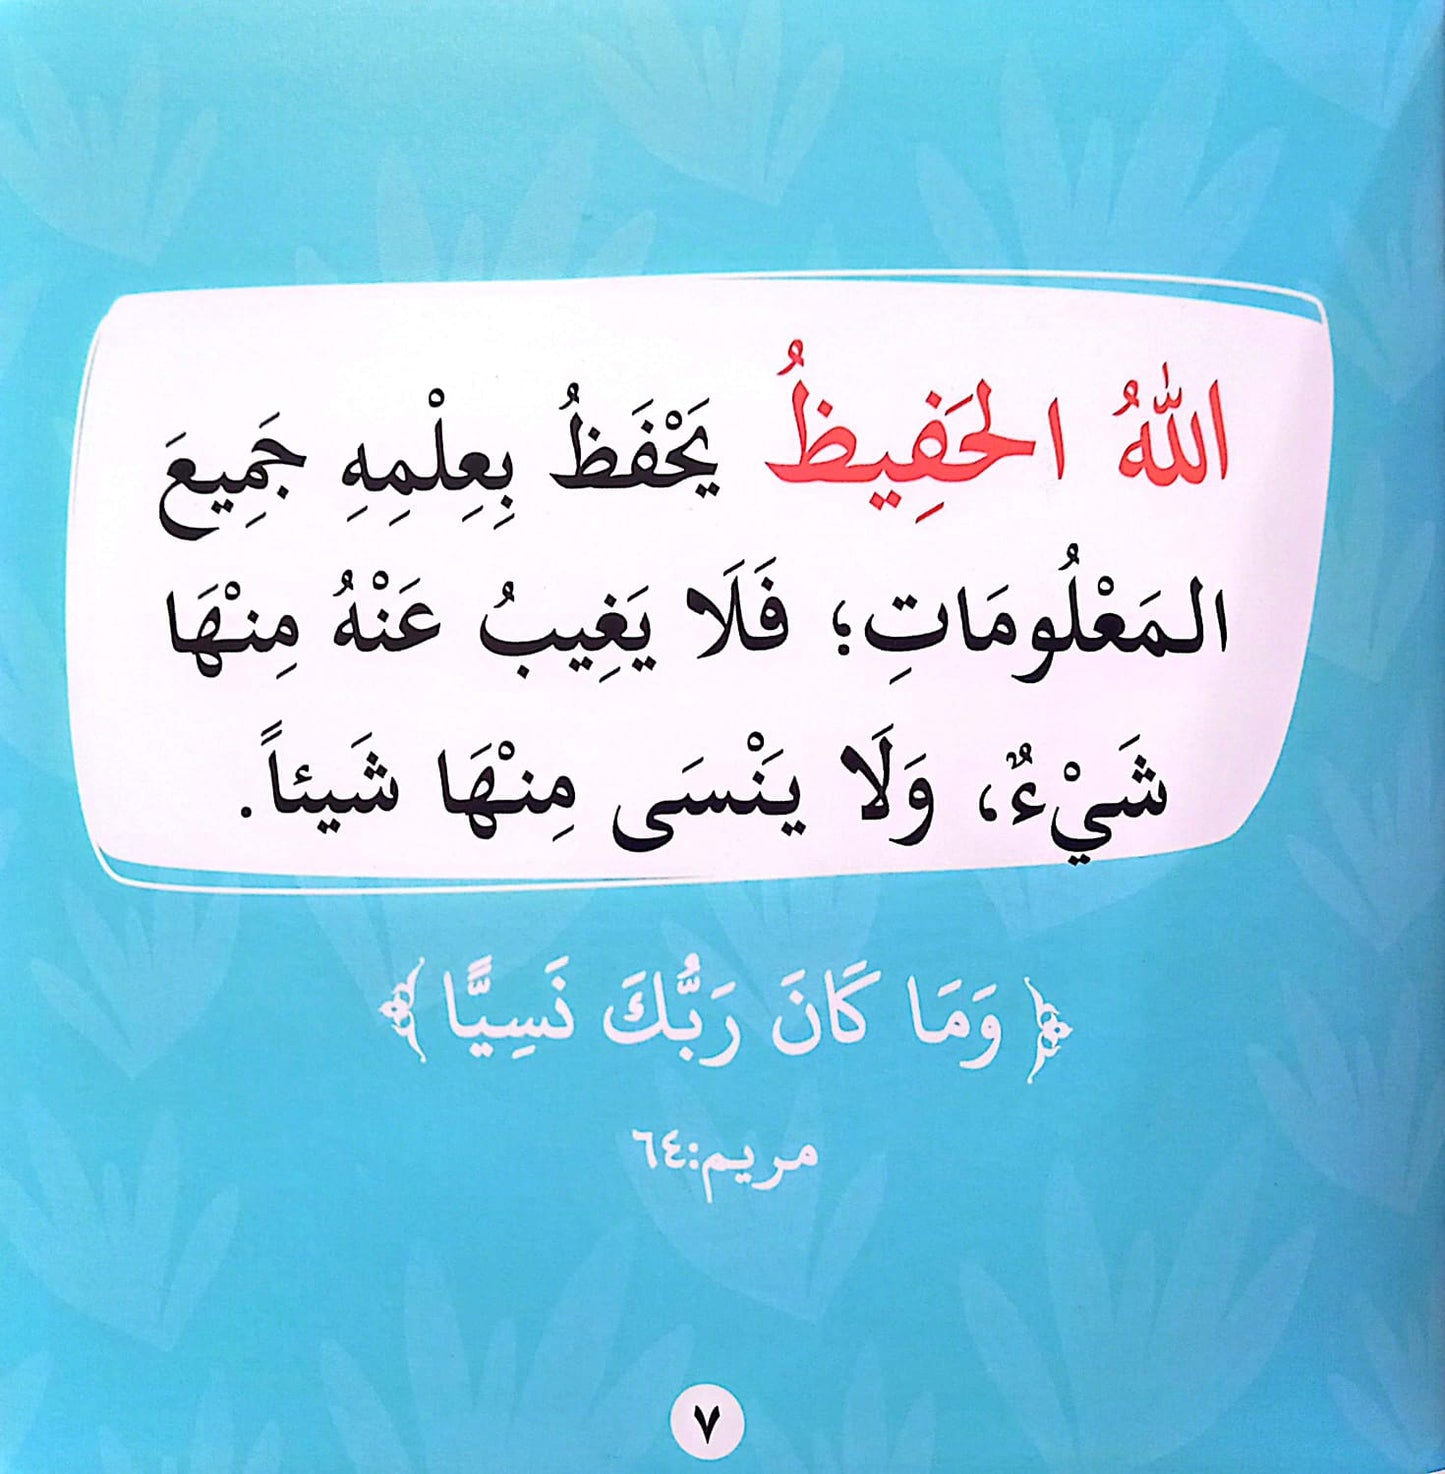 اللهُ الحَفِيظُ يَحْفَظُ بِعِلْمِهِ جَمِيعَ
المَعْلُومَاتِ؛ فَلَا يَغِيبُ عَنْهُ مِنْهَا
شَيْءٌ، وَلَا يَنْسَى مِنْهَا شَيئاً.
﴿ وَمَا كَانَ رَبُّكَ نَسِيًّا ﴾
مريم:٦٤
٧